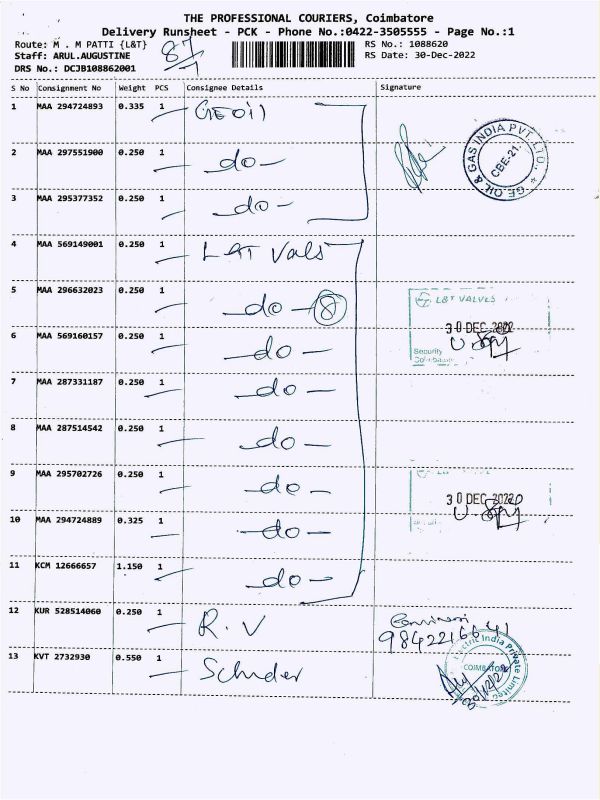 THE PROFESSIONAL COURIERS, Coimbatore
Delivery Runsheet - PCK - Phone No.:0422-3505555 - Page No.:1
Route: M . M PATTI {L&T}
Staff: ARUL.AUGUSTINE
DRS No.: DCJB108862001
87
RS No.: 1088620
RS Date: 30-Dec-2022
S No Consignment No Weight PCS Consignee Details Signature
1 MAA 294724893 0.335 1 GE oil
2 MAA 297551900 0.250 1 -do-
3 MAA 295377352 0.250 1 -do-
GE OIL & GAS INDIA PVT. LTD. * CBE-21.
4 MAA 569149001 0.250 1 L&T Vals
5 MAA 296632023 0.250 1 -do- 8
L&T VALVES
30 DEC 2022
Security
Coimbatore
6 MAA 569160157 0.250 1 -do-
7 MAA 287331187 0.250 1 -do-
8 MAA 287514542 0.250 1 -do-
9 MAA 295702726 0.250 1 -do-
30 DEC 2022
10 MAA 294724889 0.325 1 -do-
11 KCM 12666657 1.150 1 -do-
12 KUR 528514060 0.250 1 R.V
9842216641
13 KVT 2732930 0.550 1 Schnder
Electric India Private Limited
COIMBATORE
30/12/22